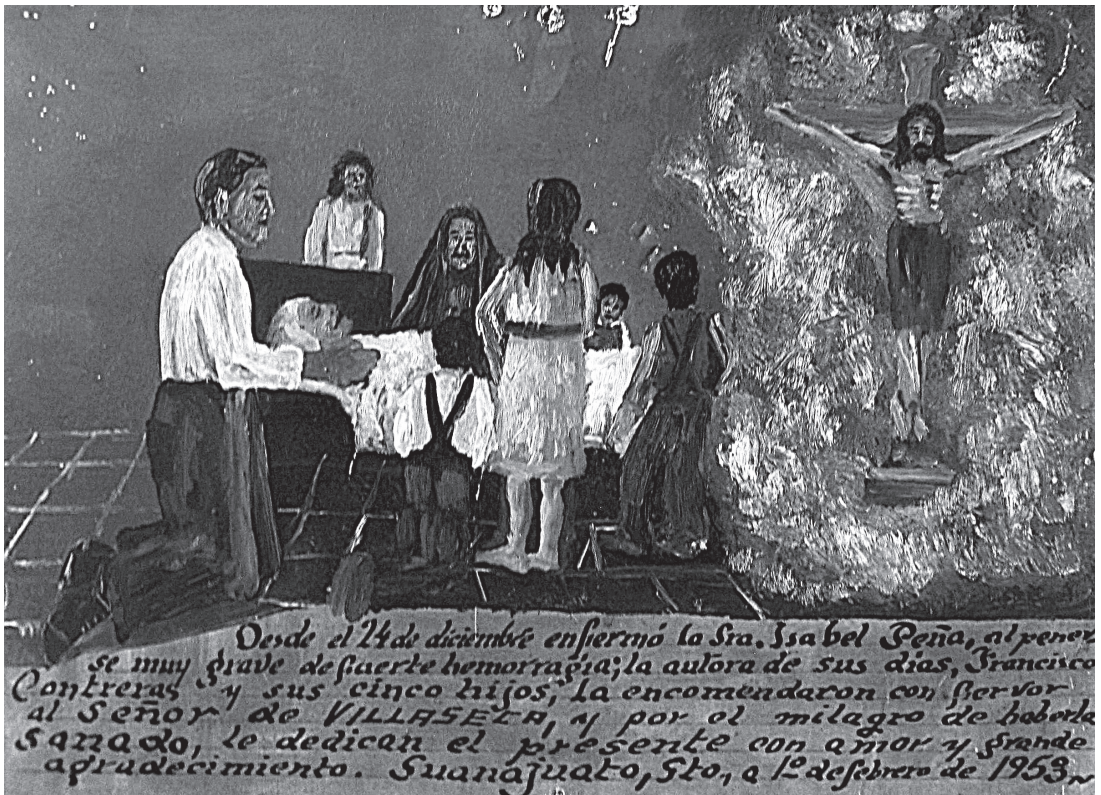 Desde el 24 de diciembre enfermó la Sra. Isabel Peña, al poner
se muy grave de fuerte hemorragia; la autora de sus días, Francisco
Contreras y sus cinco hijos, la encomendaron con fervor
al Señor de VILLASECA, y por el milagro de haberla
sanado, le dedican el presente con amor y grande
agradecimiento. Guanajuato, Gto., a 1º de febrero de 1953~